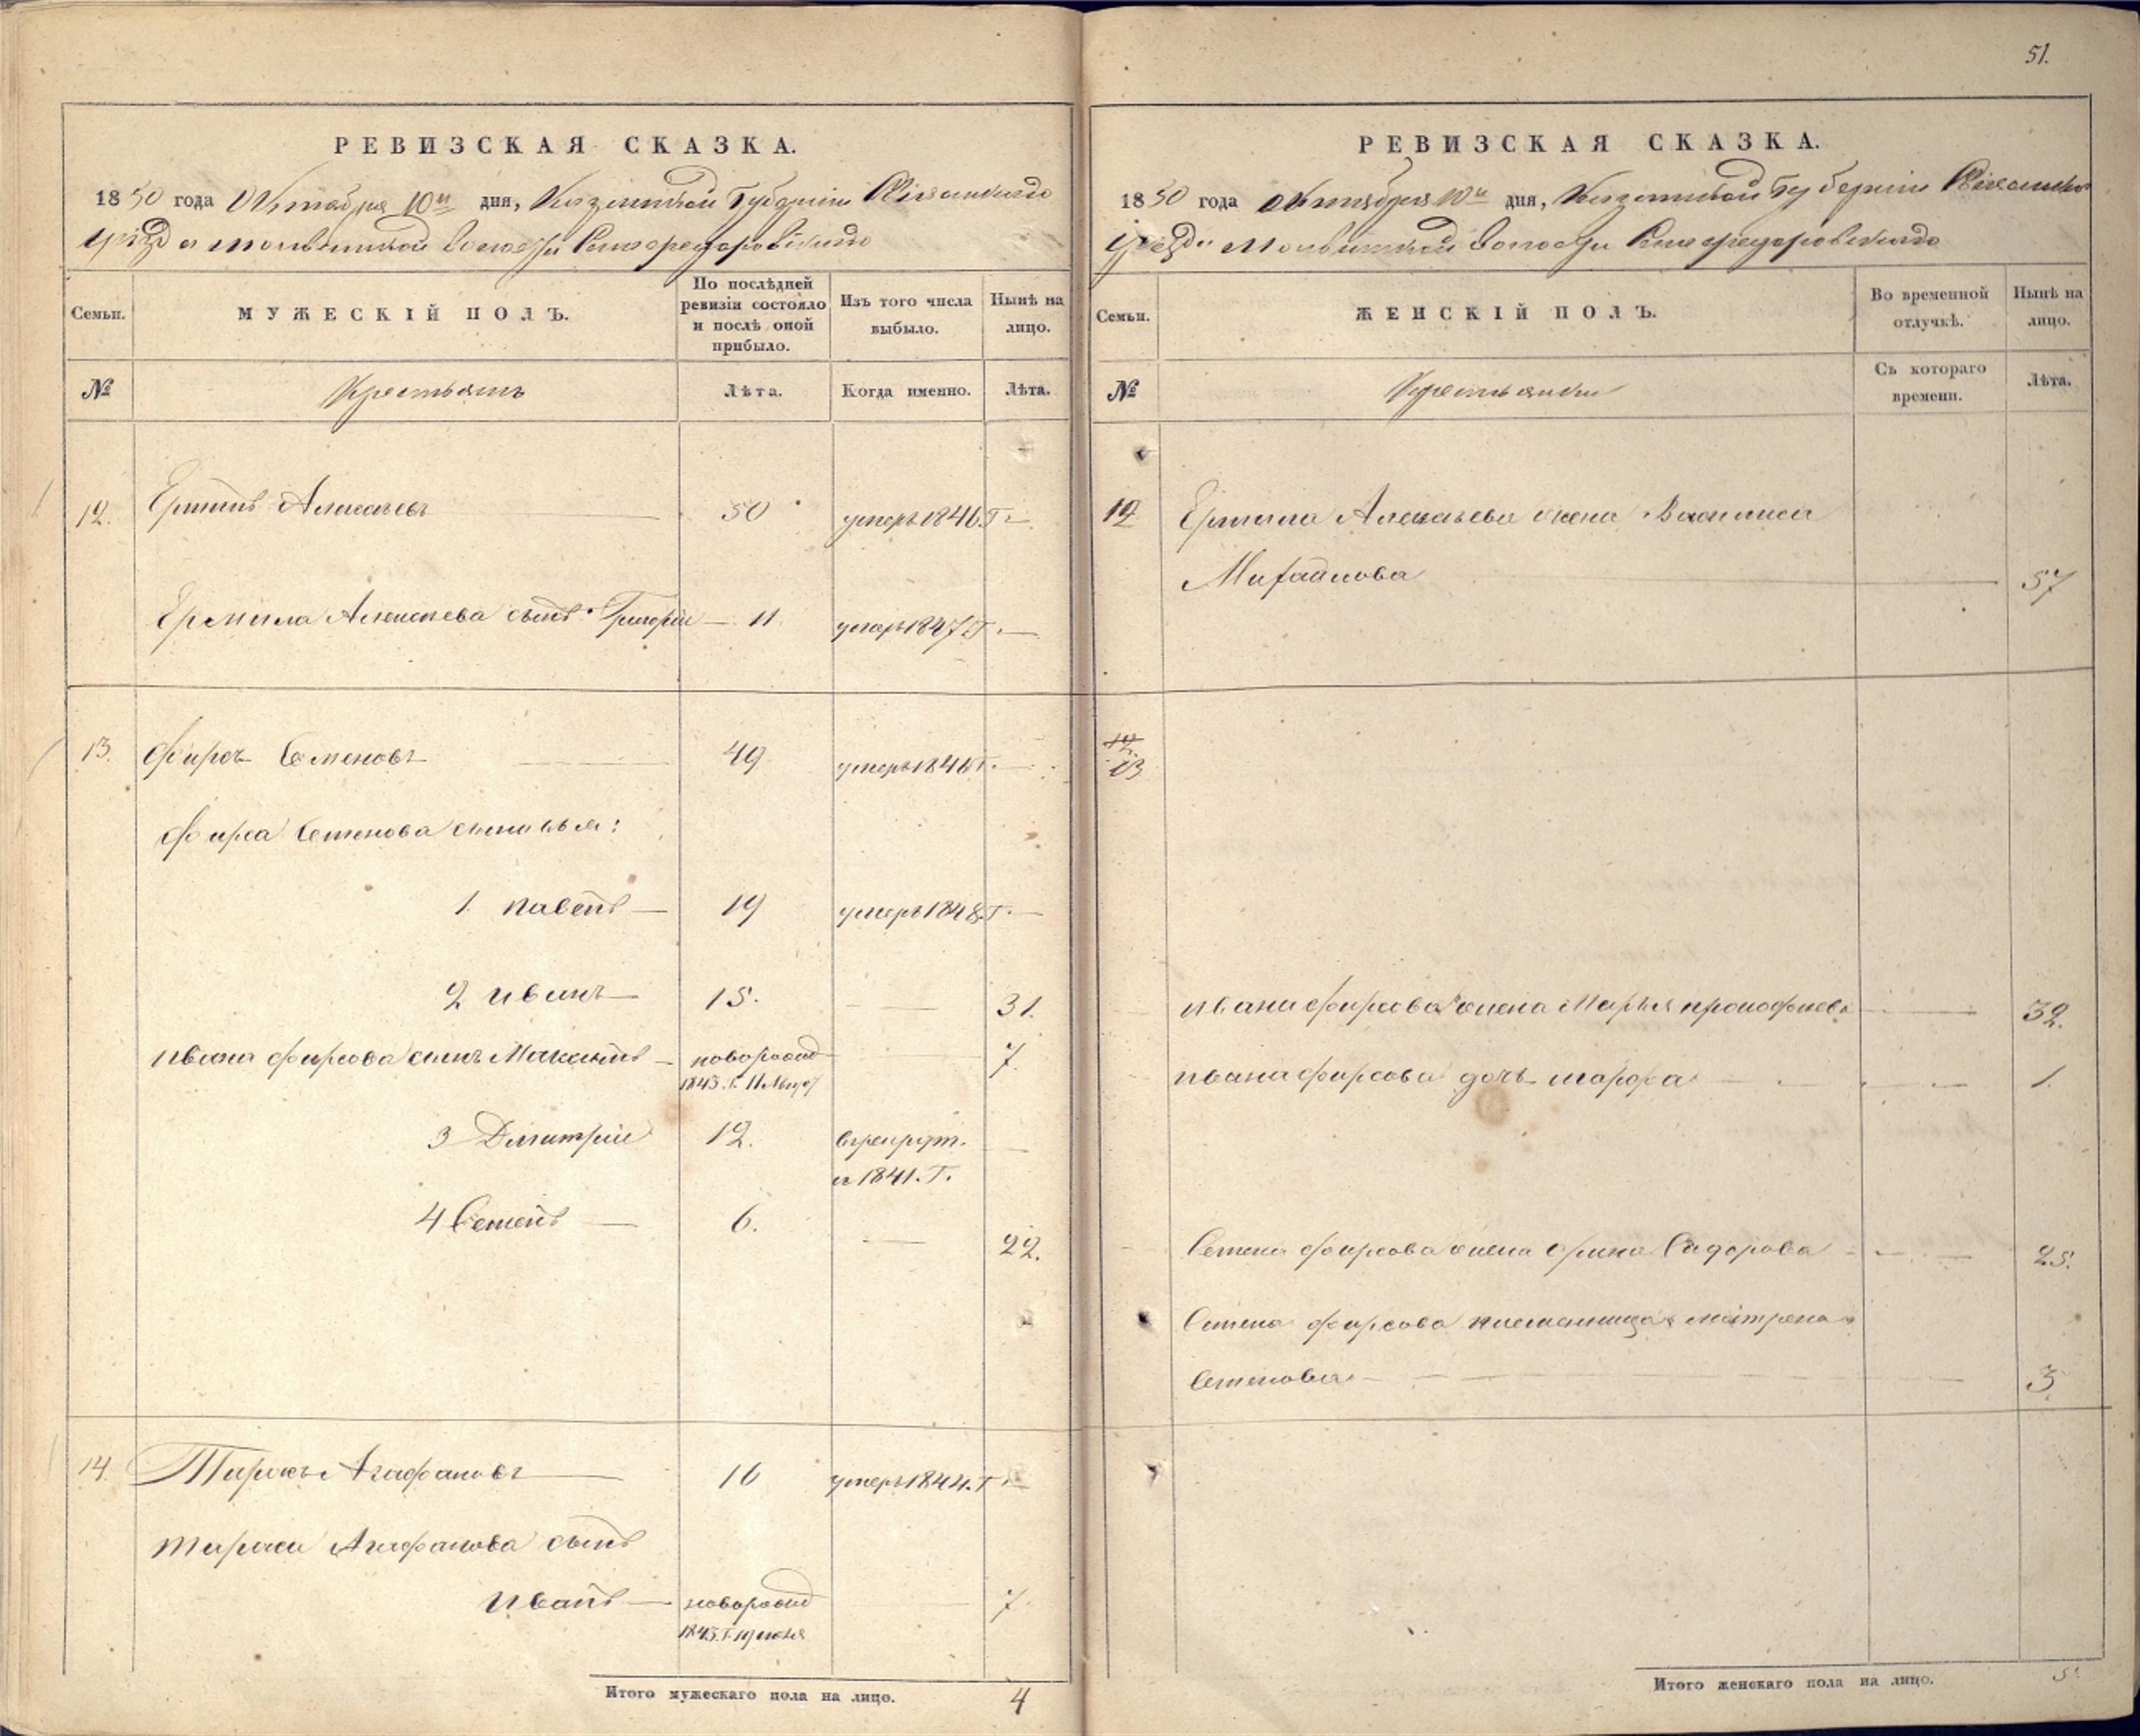 51.
РЕВИЗСКАЯ СКАЗКА.
1850 года Октября 10го дня, Казанской Губернии
уезда волости
Семьи. МУЖЕСКІЙ ПОЛЪ. По послѣдней ревизіи состояло и послѣ оной прибыло. Изъ того числа выбыло. Нынѣ на лицо.
№ Крестьянъ Лѣта. Когда именно. Лѣта.
12. Ермилъ Алексѣевъ 50 умеръ 1846. Г.
Ермила Алексѣева сынъ Григорій 11 умеръ 1847 Г.
13. Фирсъ Семеновъ 49 умеръ 1846 Г.
Фирса Семенова сыновья:
1. Павелъ 19 умеръ 1848. Г.
2 Иванъ 15. 31.
Ивана Фирсова сынъ Максимъ новорожд 7.
1843. Г.
3 Дмитрій 12. в рекрут.
с 1841. Г.
4 Семенъ 6. 22.
14. Тарасъ Агафоновъ 16 умеръ 1844. Г
Тараса Агафонова сынъ
Иванъ новорожд 7.
1843. Г.
Итого мужескаго пола на лицо. 4
РЕВИЗСКАЯ СКАЗКА.
1850 года Октября 10го дня, Казанской Губерніи
уезда волости
Семьи. ЖЕНСКІЙ ПОЛЪ. Во временной отлучкѣ. Нынѣ на лицо.
№ Крестьянки Съ котораго времени. Лѣта.
12 Ермила Алексѣева жена Василиса
Михайлова 57
12.
13
Ивана Фирсова жена Марья Прокофьева 32.
Ивана Фирсова дочь Марфа 1.
Семена Фирсова жена Орина Сидорова 25.
Семена Фирсова племянница Матрена
Семенова 3
Итого женскаго пола на лицо. 5